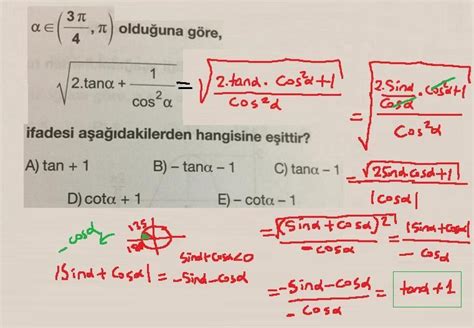 α ∈ (3π/4, π) olduğuna göre,
√(2.tanα + 1/cos²α) = √((2.tanα . cos²α + 1)/cos²α)
= √((2.Sinα/Cosα . Cos²α + 1)/Cos²α)
ifadesi aşağıdakilerden hangisine eşittir?
A) tan + 1 B) – tanα – 1 C) tanα – 1
D) cotα + 1 E) – cotα – 1
= √(2Sinα.cosα+1)/|cosα|
= √((Sinα+cosα)²)/-cosα = |Sinα+Cosα|/-cosα
-cosα
135
180
Sinα+Cosα<0
|Sinα+Cosα| = -Sinα-Cosα
= -Sinα-Cosα/-Cosα = tanα+1